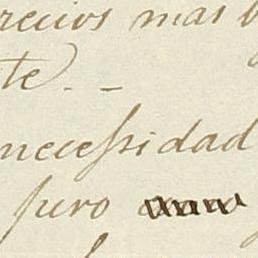 recios mas b
te. _
necessidad
juro